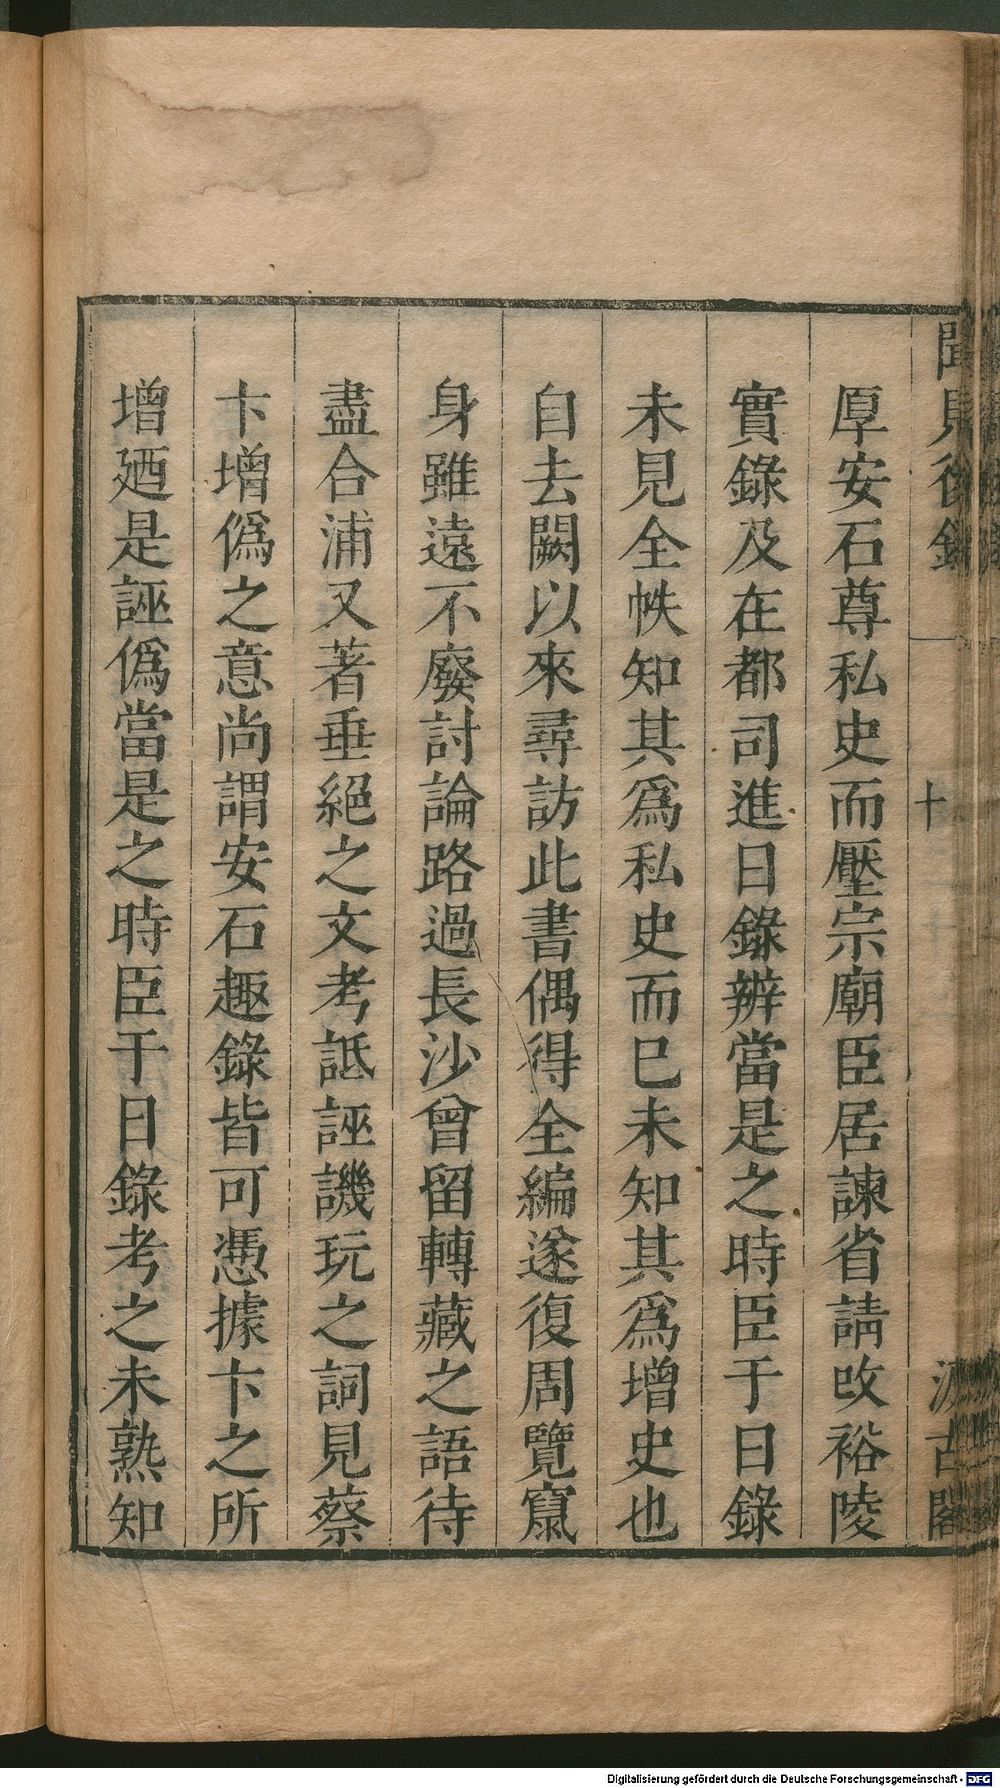 聞見後錄
十
汲古閣
厚安石尊私史而壓宗廟臣居諫省請改裕陵
實錄及在都司進日錄辨當是之時臣于日錄
未見全帙知其爲私史而已未知其爲增史也
自去闕以來尋訪此書偶得全編遂復周覽竄
身雖遠不廢討論路過長沙曾留轉藏之語待
盡合浦又著垂絕之文考詆誣譏玩之詞見蔡
卞增僞之意尚謂安石趣錄皆可憑據卞之所
增廼是誣僞當是之時臣于日錄考之未熟知
Digitalisierung gefördert durch die Deutsche Forschungsgemeinschaft - DFG